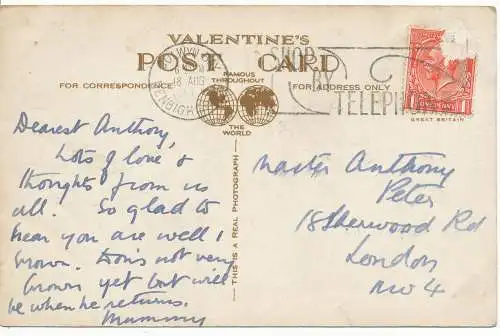 VALENTINE'S
POST CARD
FOR CORRESPONDENCE
FAMOUS THROUGHOUT
THE WORLD
FOR ADDRESS ONLY
18 AUG
DENBIGH
SHOP
BY
TELEPH
GREAT BRITAIN
THIS IS A REAL PHOTOGRAPH
Dearest Anthony,
Lots of love &
thoughts from us
all. So glad to
hear you are well &
brown. Don's not very
brown yet but will
be when he returns.
Mummy
Master Anthony
Peter
18 Sherwood Rd
London
NW4